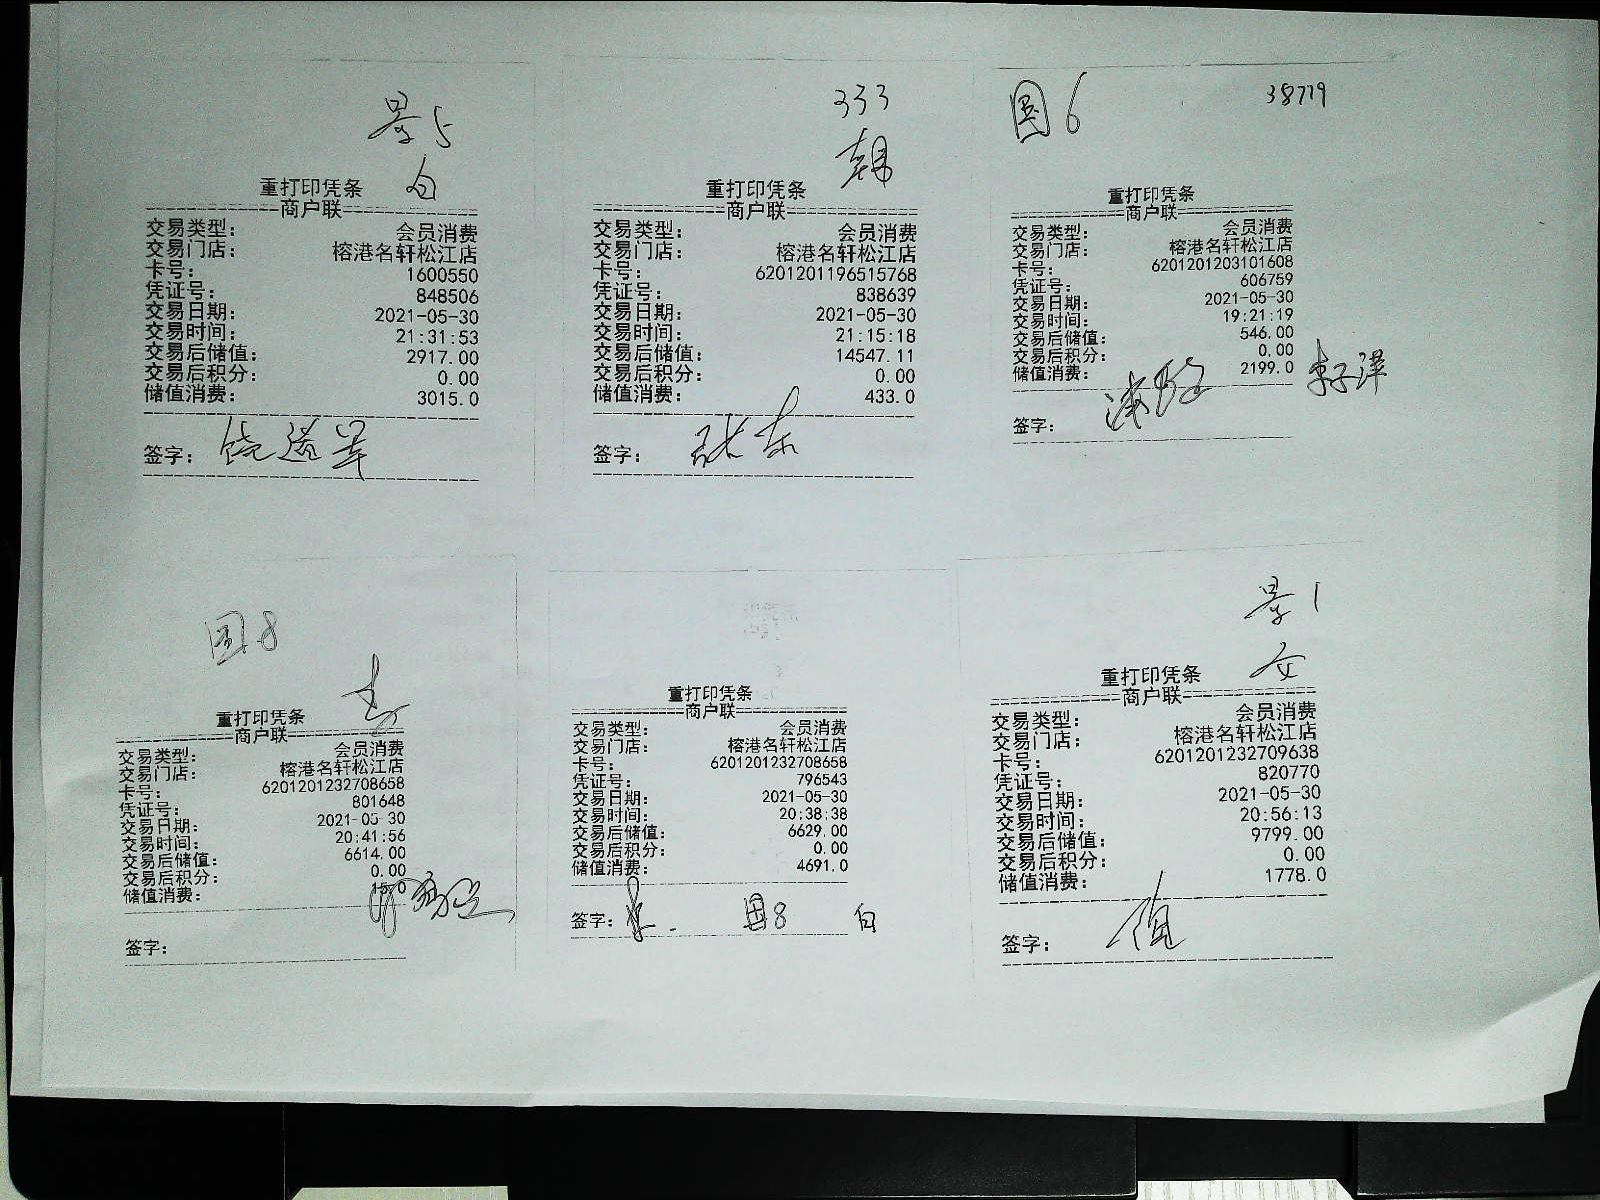 景5
白
重打印凭条
商户联
交易类型: 会员消费
交易门店: 榕港名轩松江店
卡号: 1600550
凭证号: 848506
交易日期: 2021-05-30
交易时间: 21:31:53
交易后储值: 2917.00
交易后积分: 0.00
储值消费: 3015.0
签字:
333
重打印凭条
商户联
交易类型: 会员消费
交易门店: 榕港名轩松江店
卡号: 6201201196515768
凭证号: 838639
交易日期: 2021-05-30
交易时间: 21:15:18
交易后储值: 14547.11
交易后积分: 0.00
储值消费: 433.0
签字: 张东
6 38719
重打印凭条
商户联
交易类型: 会员消费
交易门店: 榕港名轩松江店
卡号: 6201201203101608
凭证号: 606759
交易日期: 2021-05-30
交易时间: 19:21:19
交易后储值: 546.00
交易后积分: 0.00
储值消费: 2199.0
签字:
8
重打印凭条
商户联
交易类型: 会员消费
交易门店: 榕港名轩松江店
卡号: 6201201232708658
凭证号: 801648
交易日期: 2021-05-30
交易时间: 20:41:56
交易后储值: 6614.00
交易后积分: 0.00
储值消费: 15.0
签字:
重打印凭条
商户联
交易类型: 会员消费
交易门店: 榕港名轩松江店
卡号: 6201201232708658
凭证号: 796543
交易日期: 2021-05-30
交易时间: 20:38:38
交易后储值: 6629.00
交易后积分: 0.00
储值消费: 4691.0
签字: 8 白
景1
重打印凭条
商户联
交易类型: 会员消费
交易门店: 榕港名轩松江店
卡号: 6201201232709638
凭证号: 820770
交易日期: 2021-05-30
交易时间: 20:56:13
交易后储值: 9799.00
交易后积分: 0.00
储值消费: 1778.0
签字: